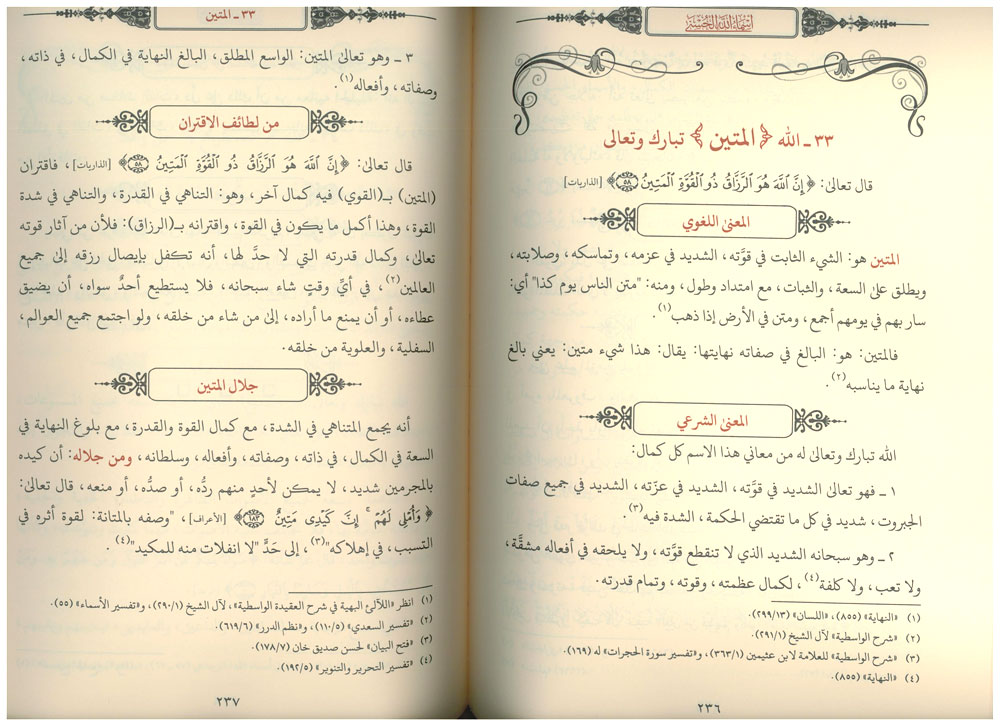 أسماء الله الحسنى
٣٣ ـ الله ﴿المتين﴾ تبارك وتعالى
قال تعالى: ﴿إِنَّ ٱللَّهَ هُوَ ٱلرَّزَّاقُ ذُو ٱلْقُوَّةِ ٱلْمَتِينُ ۝٥٨﴾ [الذاريات]
المعنى اللغوي
المتين هو: الشيء الثابت في قوَّته، الشديد في عزمه، وتماسكه، وصلابته،
ويطلق على السعة، والثبات، مع امتداد وطول، ومنه: "متن الناس يوم كذا" أي:
سار بهم في يومهم أجمع، ومتن في الأرض إذا ذهب(١).
فالمتين: هو: البالغ في صفاته نهايتها: يقال: هذا شيء متين: يعني بالغ
نهاية ما يناسبه(٢).
المعنى الشرعي
الله تبارك وتعالى له من معاني هذا الاسم كل كمال:
١ ـ فهو تعالى الشديد في قوَّته، الشديد في عزّته، الشديد في جميع صفات
الجبروت، شديد في كل ما تقتضي الحكمة، الشدة فيه(٣).
٢ ـ وهو سبحانه الشديد الذي لا تنقطع قوَّته، ولا يلحقه في أفعاله مشقَّة،
ولا تعب، ولا كلفة(٤)، لكمال عظمته، وقوته، وتمام قدرته.
(١) «النهاية» (٨٥٥)، «اللسان» (٢٩٩/١٣).
(٢) «شرح الواسطية» لآل الشيخ (٢٩١/١).
(٣) «شرح الواسطية» للعلامة لابن عثيمين (٣٦٣/١)، و«تفسير سورة الحجرات» له (١٦٩).
(٤) «النهاية» (٨٥٥).
٢٣٦
٣٣ ـ المتين
٣ ـ وهو تعالى المتين: الواسع المطلق، البالغ النهاية في الكمال، في ذاته،
وصفاته، وأفعاله(١).
من لطائف الاقتران
قال تعالى: ﴿إِنَّ ٱللَّهَ هُوَ ٱلرَّزَّاقُ ذُو ٱلْقُوَّةِ ٱلْمَتِينُ ۝٥٨﴾ [الذاريات]، فاقتران
(المتين) بـ(القوي) فيه كمال آخر، وهو: التناهي في القدرة، والتناهي في شدة
القوة، وهذا أكمل ما يكون في القوة، واقترانه بـ(الرزاق): فلأن من آثار قوته
تعالى، وكمال قدرته التي لا حدَّ لها، أنه تكفل بإيصال رزقه إلى جميع
العالمين(٢)، في أيِّ وقتٍ شاء سبحانه، فلا يستطيع أحدٌ سواه، أن يضيق
عطاءه، أو أن يمنع ما أراده، إلى من شاء من خلقه، ولو اجتمع جميع العوالم،
السفلية، والعلوية من خلقه.
جلال المتين
أنه يجمع المتناهي في الشدة، مع كمال القوة والقدرة، مع بلوغ النهاية في
السعة في الكمال، في ذاته، وصفاته، وأفعاله، وسلطانه، ومن جلاله: أن كيده
بالمجرمين شديد، لا يمكن لأحدٍ منهم ردُّه، أو صدُّه، أو منعه، قال تعالى:
﴿وَأُمْلِى لَهُمْ ۚ إِنَّ كَيْدِى مَتِينٌ ۝١٨٣﴾ [الأعراف]، "وصفه بالمتانة: لقوة أثره في
التسبب، في إهلاكه"(٣)، إلى حَدٍّ "لا انفلات منه للمكيد"(٤).
(١) انظر «اللآلئ البهية في شرح العقيدة الواسطية»، لآل الشيخ (٢٩٠/١)، و«تفسير الأسماء» (٥٥).
(٢) «تفسير السعدي» (١١٠/٥)، و«نظم الدرر» (٦١٩/٦).
(٣) «فتح البيان» لحسن صديق خان (١٧٨/٧).
(٤) «تفسير التحرير والتنوير» (١٩٢/٥).
٢٣٧